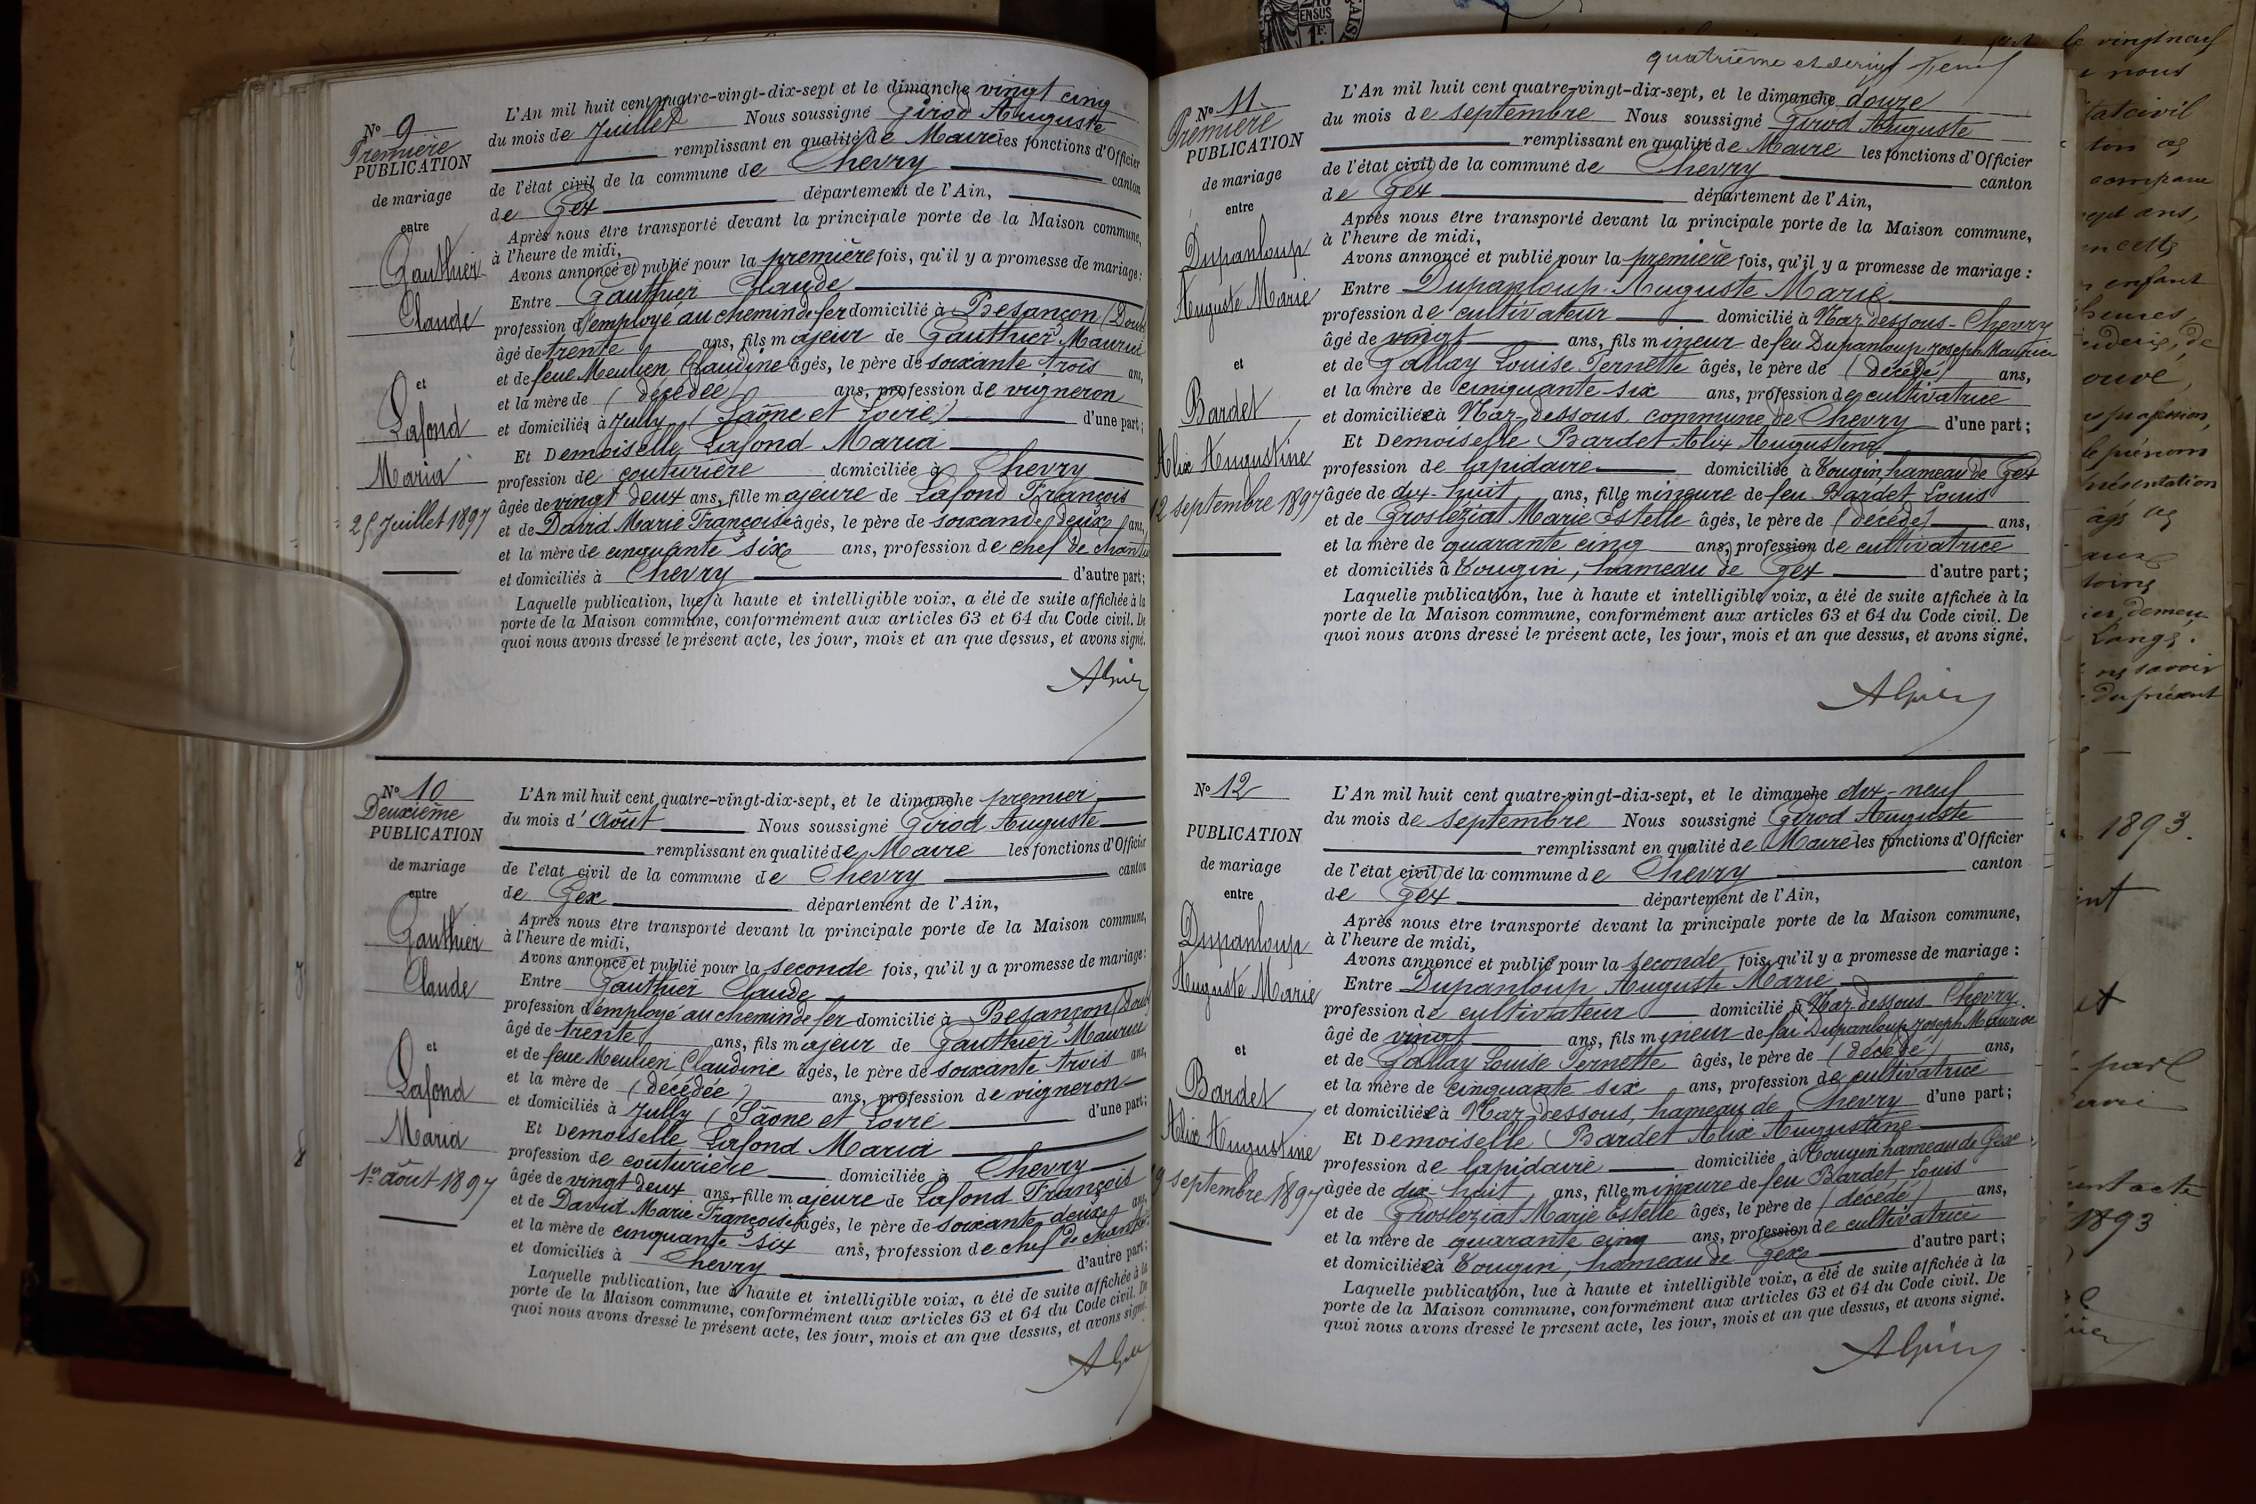 N° 9
Première
PUBLICATION
de mariage
entre
Gauthier
Claude
et
Lafond
Maria
25 Juillet 1897
L'An mil huit cent quatre-vingt-dix-sept et le dimanche vingt cinq
du mois de Juillet Nous soussigné Girod Auguste
remplissant en qualité de Maire les fonctions d'Officier
de l'état civil de la commune de Chevry canton
de Gex département de l'Ain,
Après nous être transporté devant la principale porte de la Maison commune,
à l'heure de midi,
Avons annoncé et publié pour la première fois, qu'il y a promesse de mariage:
Entre Gauthier Claude
profession d'employé au chemin de fer domicilié à Besançon (Doubs
âgé de trente ans, fils majeur de Gauthier Maurice
et de feue Meulien Claudine âgés, le père de soixante trois ans,
et la mère de (décédée) ans, profession de vigneron
et domiciliés à Jully (Saône et Loire) d'une part;
Et Demoiselle Lafond Maria
profession de couturière domiciliée à Chevry
âgée de vingt deux ans, fille majeure de Lafond François
et de David Marie Françoise âgés, le père de soixante deux ans,
et la mère de cinquante six ans, profession de chef de chantier
et domiciliés à Chevry d'autre part;
Laquelle publication, lue à haute et intelligible voix, a été de suite affichée à la
porte de la Maison commune, conformément aux articles 63 et 64 du Code civil. De
quoi nous avons dressé le présent acte, les jour, mois et an que dessus, et avons signé.
N° 10
Deuxième
PUBLICATION
de mariage
entre
Gauthier
Claude
et
Lafond
Maria
1er août 1897
L'An mil huit cent quatre-vingt-dix-sept, et le dimanche premier
du mois d'Août Nous soussigné Girod Auguste
remplissant en qualité de Maire les fonctions d'Officier
de l'état civil de la commune de Chevry canton
de Gex département de l'Ain,
Après nous être transporté devant la principale porte de la Maison commune,
à l'heure de midi,
Avons annoncé et publié pour la seconde fois, qu'il y a promesse de mariage:
Entre Gauthier Claude
profession d'employé au chemin de fer domicilié à Besançon (Doubs
âgé de trente ans, fils majeur de Gauthier Maurice
et de feue Meulien Claudine âgés, le père de soixante trois ans,
et la mère de (décédée) ans, profession de vigneron
et domiciliés à Jully (Saône et Loire d'une part;
Et Demoiselle Lafond Maria
profession de couturière domiciliée à Chevry
âgée de vingt deux ans, fille majeure de Lafond François
et de David Marie Françoise âgés, le père de soixante deux ans,
et la mère de cinquante six ans, profession de chef de chantier
et domiciliés à Chevry d'autre part;
Laquelle publication, lue à haute et intelligible voix, a été de suite affichée à la
porte de la Maison commune, conformément aux articles 63 et 64 du Code civil. De
quoi nous avons dressé le présent acte, les jour, mois et an que dessus, et avons signé.
quatrième et dernier
N° 11
Première
PUBLICATION
de mariage
entre
Dupanloup
Auguste Marie
et
Bardet
Alix Augustine
12 septembre 1897
L'An mil huit cent quatre-vingt-dix-sept, et le dimanche douze
du mois de septembre Nous soussigné Girod Auguste
remplissant en qualité de Maire les fonctions d'Officier
de l'état civil de la commune de Chevry canton
de Gex département de l'Ain,
Après nous être transporté devant la principale porte de la Maison commune,
à l'heure de midi,
Avons annoncé et publié pour la première fois, qu'il y a promesse de mariage :
Entre Dupanloup Auguste Marie
profession de cultivateur domicilié à Naz dessous - Chevry
âgé de vingt ans, fils mineur de feu Dupanloup Joseph Maurice
et de Gallay Louise Pernette âgés, le père de (décédé) ans,
et la mère de cinquante six ans, profession de cultivatrice
et domiciliée à Naz-dessous commune de Chevry d'une part;
Et Demoiselle Bardet Alix Augustine
profession de lapidaire domiciliée à Tougin, hameau de Gex
âgée de dix-huit ans, fille mineure de feu Bardet Louis
et de Grosleziat Marie Estelle âgés, le père de (décédé) ans,
et la mère de quarante cinq ans, profession de cultivatrice
et domiciliés à Tougin, hameau de Gex d'autre part;
Laquelle publication, lue à haute et intelligible voix, a été de suite affichée à la
porte de la Maison commune, conformément aux articles 63 et 64 du Code civil. De
quoi nous avons dressé le présent acte, les jour, mois et an que dessus, et avons signé.
N° 12
PUBLICATION
de mariage
entre
Dupanloup
Auguste Marie
et
Bardet
Alix Augustine
9 septembre 1897
L'An mil huit cent quatre-vingt-dix-sept, et le dimanche dix-neuf
du mois de septembre Nous soussigné Girod Auguste
remplissant en qualité de Maire les fonctions d'Officier
de l'état civil de la commune de Chevry canton
de Gex département de l'Ain,
Après nous être transporté devant la principale porte de la Maison commune,
à l'heure de midi,
Avons annoncé et publié pour la seconde fois, qu'il y a promesse de mariage :
Entre Dupanloup Auguste Marie
profession de cultivateur domicilié à Naz dessous Chevry
âgé de vingt ans, fils mineur de feu Dupanloup Joseph Maurice
et de Gallay Louise Pernette âgés, le père de (décédé) ans,
et la mère de cinquante six ans, profession de cultivatrice
et domiciliée à Naz-dessous, hameau de Chevry d'une part;
Et Demoiselle Bardet Alix Augustine
profession de lapidaire domiciliée à Tougin hameau de Gex
âgée de dix-huit ans, fille mineure de feu Bardet Louis
et de Grosleziat Marie Estelle âgés, le père de (décédé) ans,
et la mère de quarante cinq ans, profession de cultivatrice
et domiciliée à Tougin, hameau de Gex d'autre part;
Laquelle publication, lue à haute et intelligible voix, a été de suite affichée à la
porte de la Maison commune, conformément aux articles 63 et 64 du Code civil. De
quoi nous avons dressé le présent acte, les jour, mois et an que dessus, et avons signé.
le vingt neuf
nous
ans,
enfant
heures,
profession,
le prénom
présentation
savoir
du présent
1893.
1893